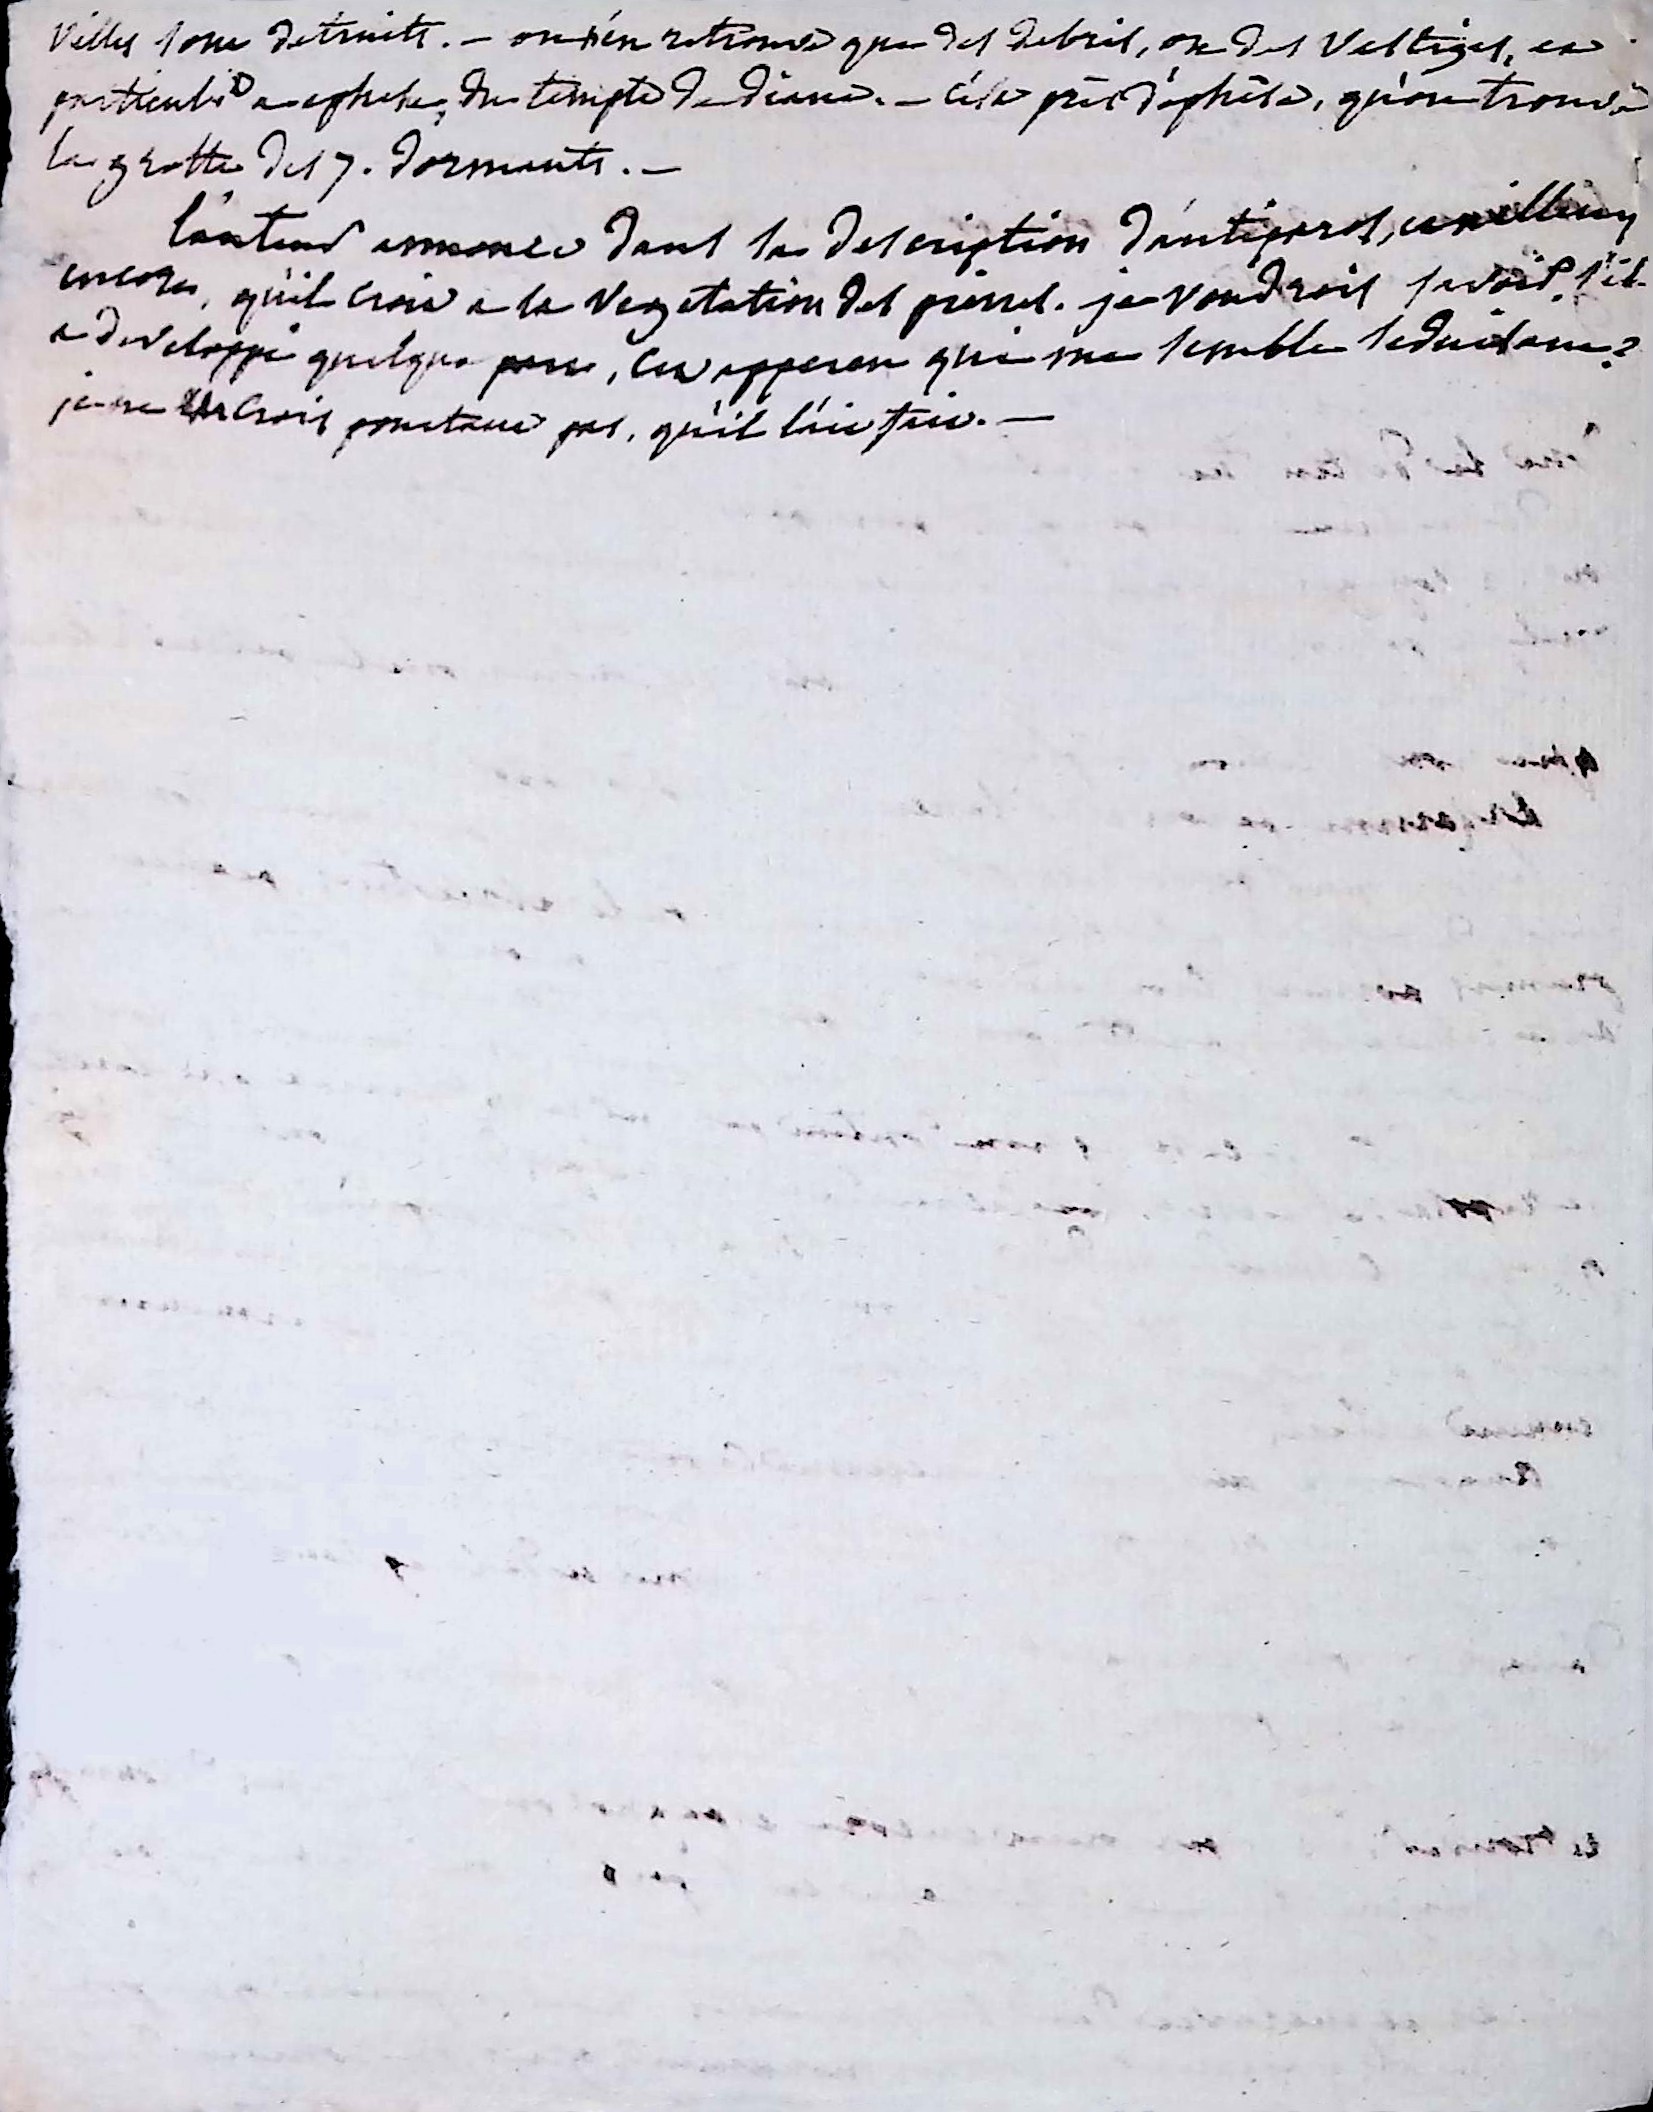 villes sont detruits. – on n'en retrouve que des debris, ou des vestiges, en
particulier a ephese, du temple de diane. – c'est près d'ephese, qu'on trouve
la grotte des 7. dormants. –
l'auteur annonce dans la description d'antiparos, et ailleurs
encore, qu'il croit a la vegetation des pierres. je voudrois savoir, s'il
a developpé quelque part, cet apperçu qui me semble seduisant?
je ne crois pourtant pas, qu'il l'ait fait. –